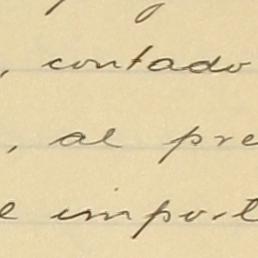 , contado
, al pre
e import